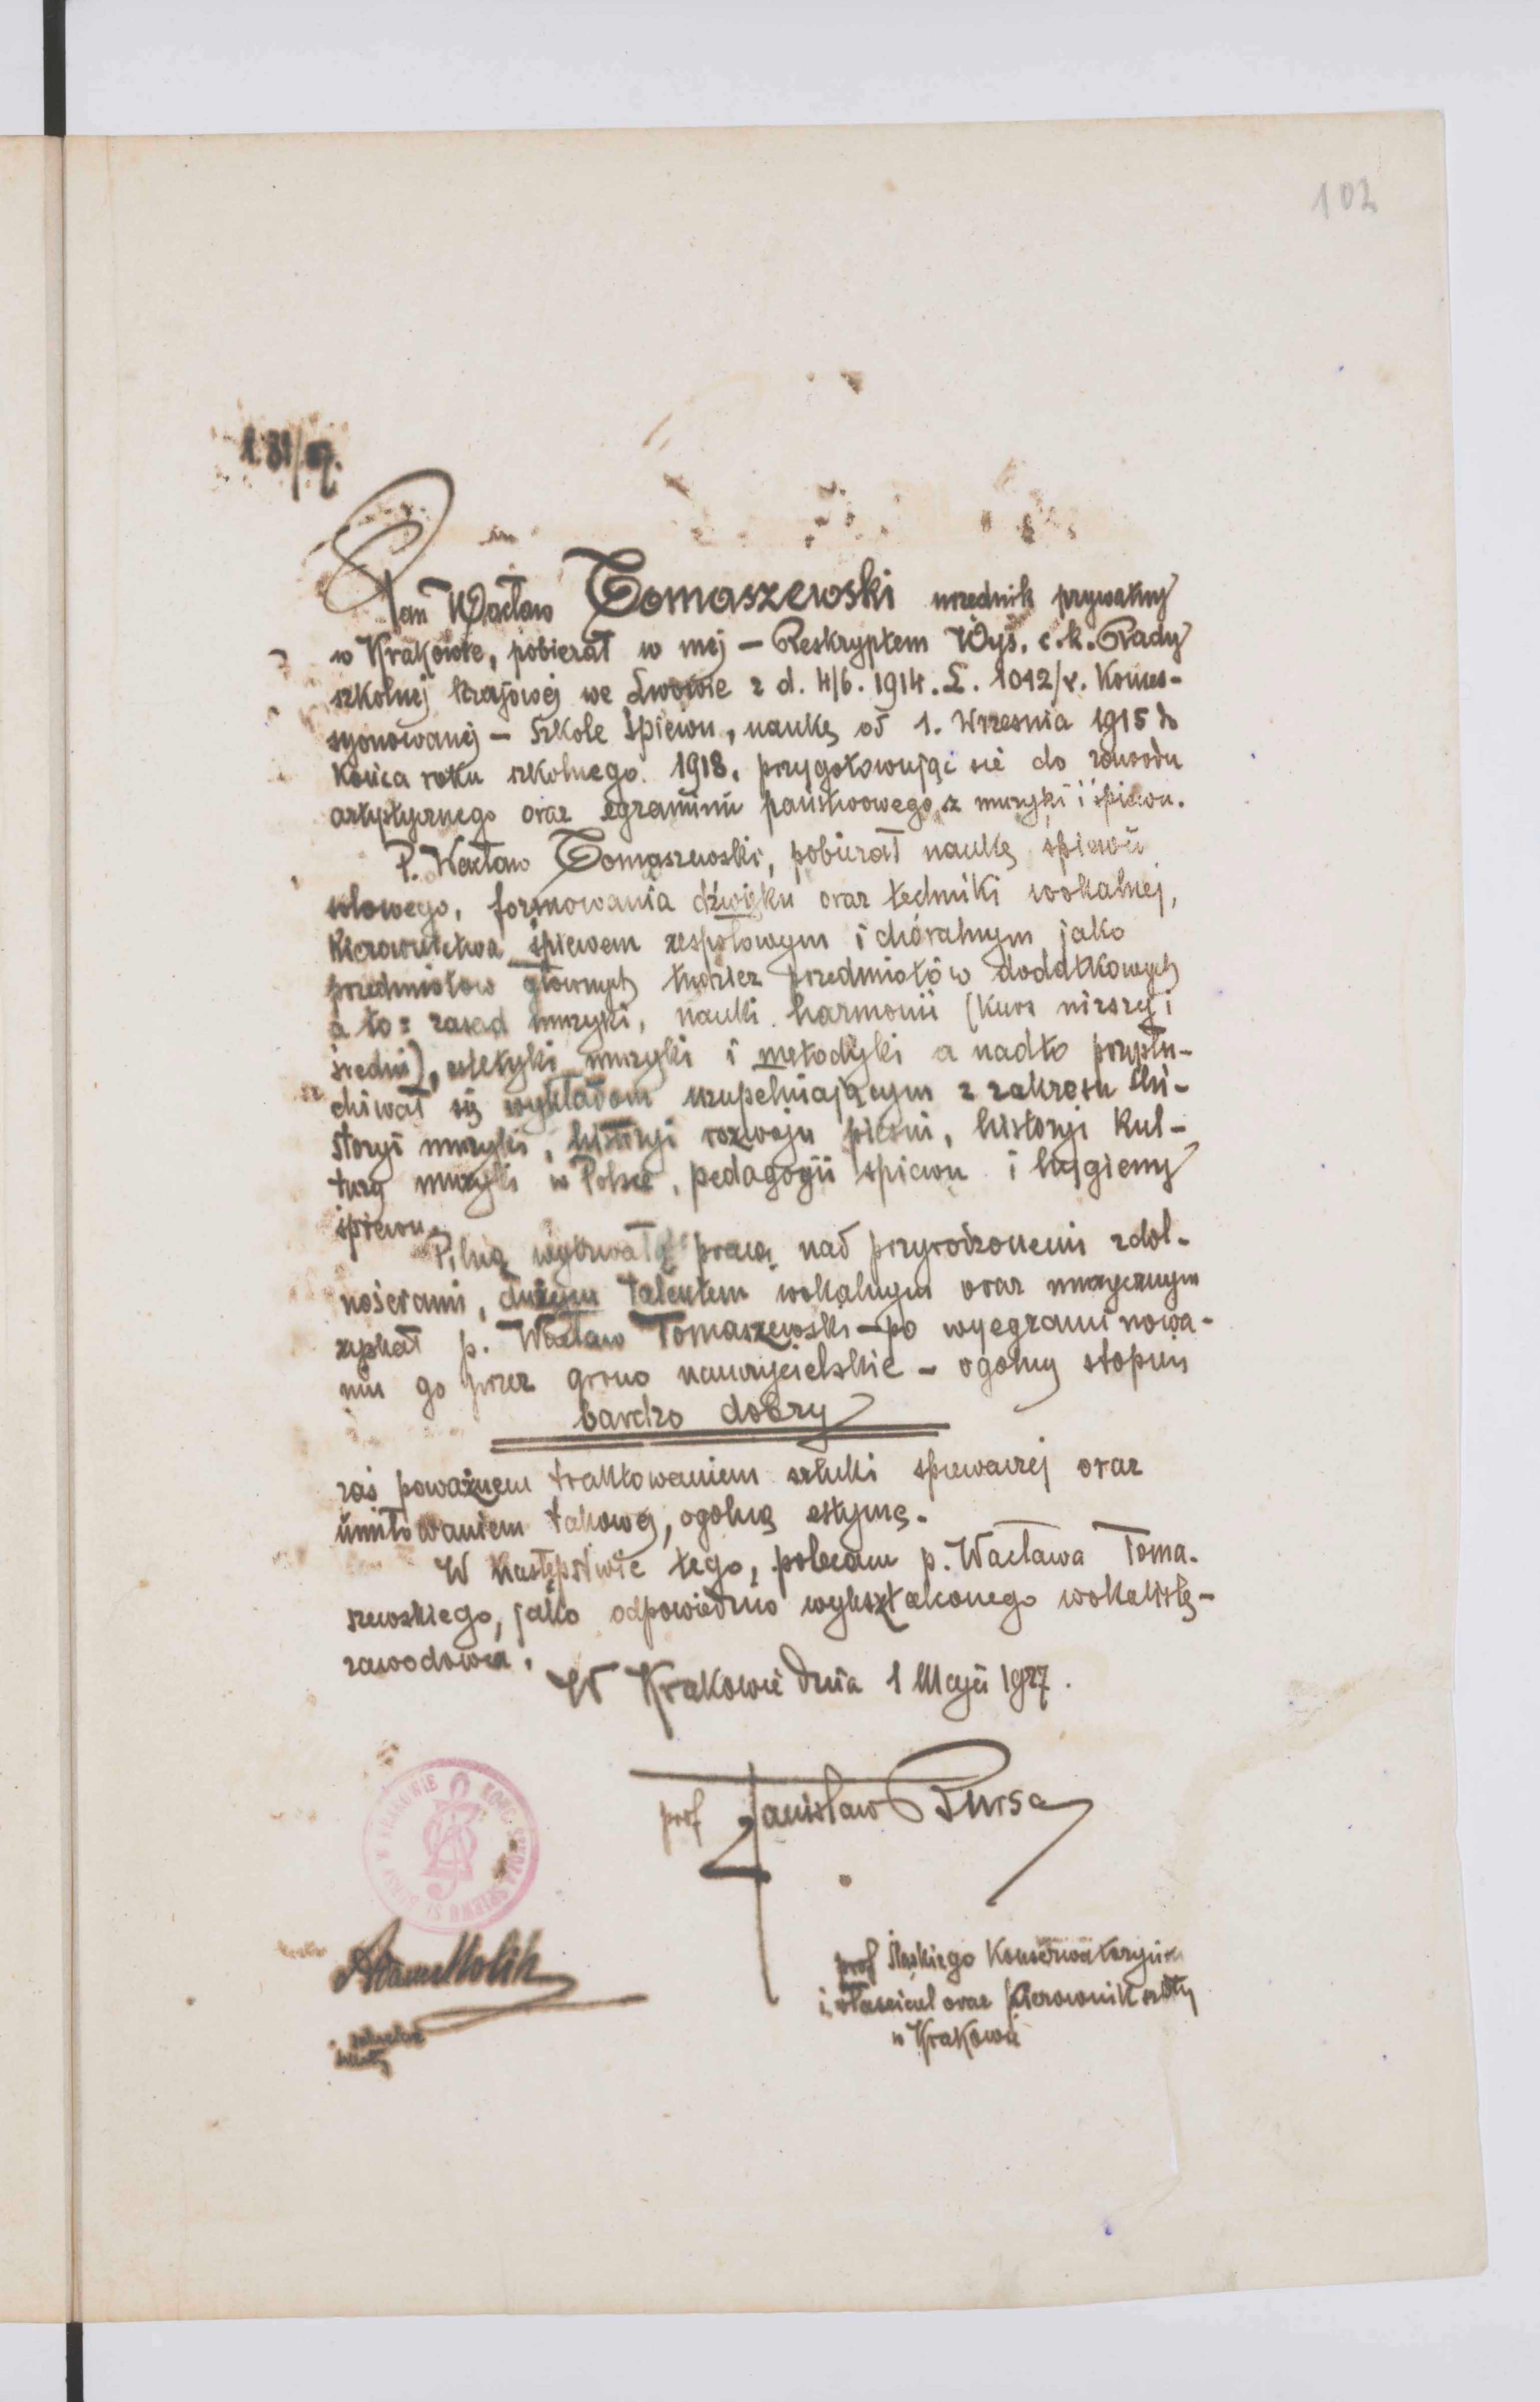 102
Pan Wacław Tomaszewski urzędnik prywatny
w Krakowie, pobierał w mej – Reskryptem Wys. c. k. Rady
szkolnej krajowej we Lwowie z d. 4/6. 1914. L. 1012/r. Konces-
syonowanej – Szkole śpiewu, naukę od 1. Września 1915 do
końca roku szkolnego 1918, przygotowując się do zawodu
artystycznego oraz egzaminu państwowego z muzyki i śpiewu.
P. Wacław Tomaszewski, pobierał naukę śpiewu
solowego, formowania dźwięku oraz techniki wokalnej,
Kierownictwa śpiewem zespołowym i chóralnym jako
przedmiotow głównych tudzież przedmiotów dodatkowych
a to: zasad muzyki, nauki harmonii (kurs niższy i
średni), estetyki muzyki i metodyki a nadto przysłu-
chiwał się wykładom uzupełniającym z zakresu hi-
storyi muzyki, historyi rozwoju pieśni, historyi kul-
tury muzyki w Polsce, pedagogii śpiewu i hygieny
śpiewu.
Pilną wytrwałą pracą nad przyrodzonemi zdol-
nościami, dużym talentem wokalnym oraz muzycznym
zyskał p. Wacław Tomaszewski – po wyegzaminowa-
niu go przez grono nauczycielskie – ogólny stopień
bardzo dobry
zaś poważnem traktowaniem sztuki śpiewaczej oraz
umiłowaniem takowej, ogolną estymę.
W następstwie tego, polecam p. Wacława Toma-
szewskiego, jako odpowiednio wykształconego wokalistę-
zawodowca.
W Krakowie dnia 1 Maja 1927.
prof Stanisław Bursa
KONC. SZKOŁA ŚPIEWU ST. BURSY W KRAKOWIE
Adam Molik
sekretarz
szkoły
prof Śląskiego Konserwatoryum
i właściciel oraz kierownik szkoły
w Krakowie